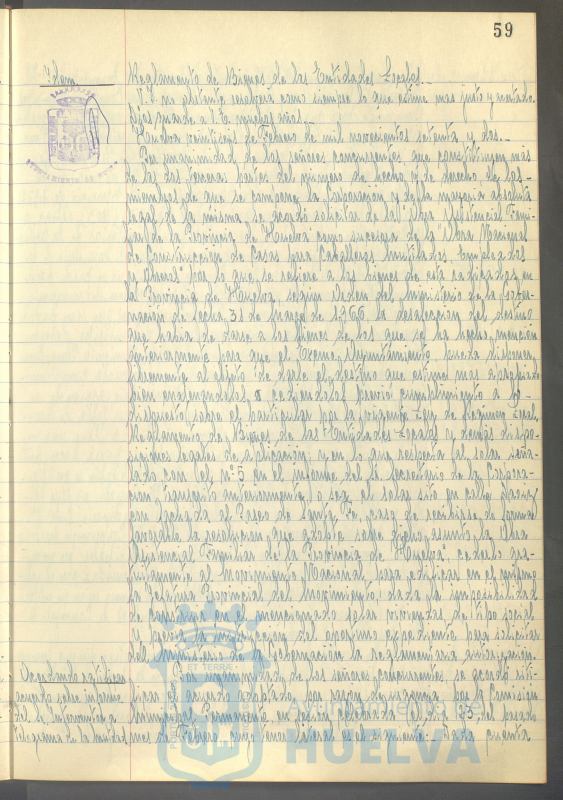 59
Idem.
Reglamento de Bienes de las Entidades Locales.-
V.E. no obstante resolverá como siempre lo que estime mas justo y acertado.
Dios guarde a V.E. muchos años.-
Huelva veintiseis de Febrero de mil novecientos setenta y dos.-
Por unanimidad de los señores concurrentes que constituyen más
de las dos terceras partes del número de hecho y de derecho de los
miembros de que se compone la Corporación y de la mayoria absoluta
legal de la misma, se acordó solicitar de la "Obra Asistencial Fami-
liar de la Provincia de Huelva" como sucesora de la "Obra Nacional
de Construcción de Casas para Caballeros Mutilados, Empleados
y Obreros" por lo que se refiere a los bienes de esta radicados en
la Provincia de Huelva, según Orden del Ministerio de la Gober-
nación de fecha 31 de Marzo de 1.966 la desafección del destino
que habia de darse a los bienes de los que se ha hecho mención
anteriormente para que el Excmo. Ayuntamiento pueda disponer
libremente al objeto de darle el destino que estime mas apropiado
bien enajenandolos, o cediendolos previo cumplimiento a lo
dispuesto sobre el particular por la vigente Ley de Régimen Local,
Reglamento de Bienes de las Entidades Locales y demás dispo-
siciones legales de aplicación; y en lo que respecta al solar seña-
lado con el nº 5 en el informe del Sr. Secretario de la Corpora-
ción, transcrito anteriormente, o sea, el solar sito en calle
con fachada al Paseo de Santa Fe, caso de recibirse de forma
favorable la resolución que adopte sobre dicho asunto la "Obra
Asistencial Familiar de la Provincia de Huelva" cederlo gra-
tuitamente al Movimiento Nacional para edificar en el mismo
la Jefatura Provincial del Movimiento, dada la imposibilidad
de construir en el mencionado solar viviendas de tipo social
y previa la instrucción del oportuno expediente para solicitar
del Ministerio de la Gobernación la reglamentaria autorización.
Acordando ratificar
acuerdo sobre informe
del Sr. Interventor a
telegrama de la Unidad
Por unanimidad de los señores concurrentes, se acordó rati-
ficar el acuerdo adoptado, por razón de urgencia, por la Comisión
Municipal Permanente en sesión celebrada el día 23 del pasado
mes de Febrero, cuyo tenor literal es el siguiente: "Dada cuenta
Ayuntamiento de
HUELVA